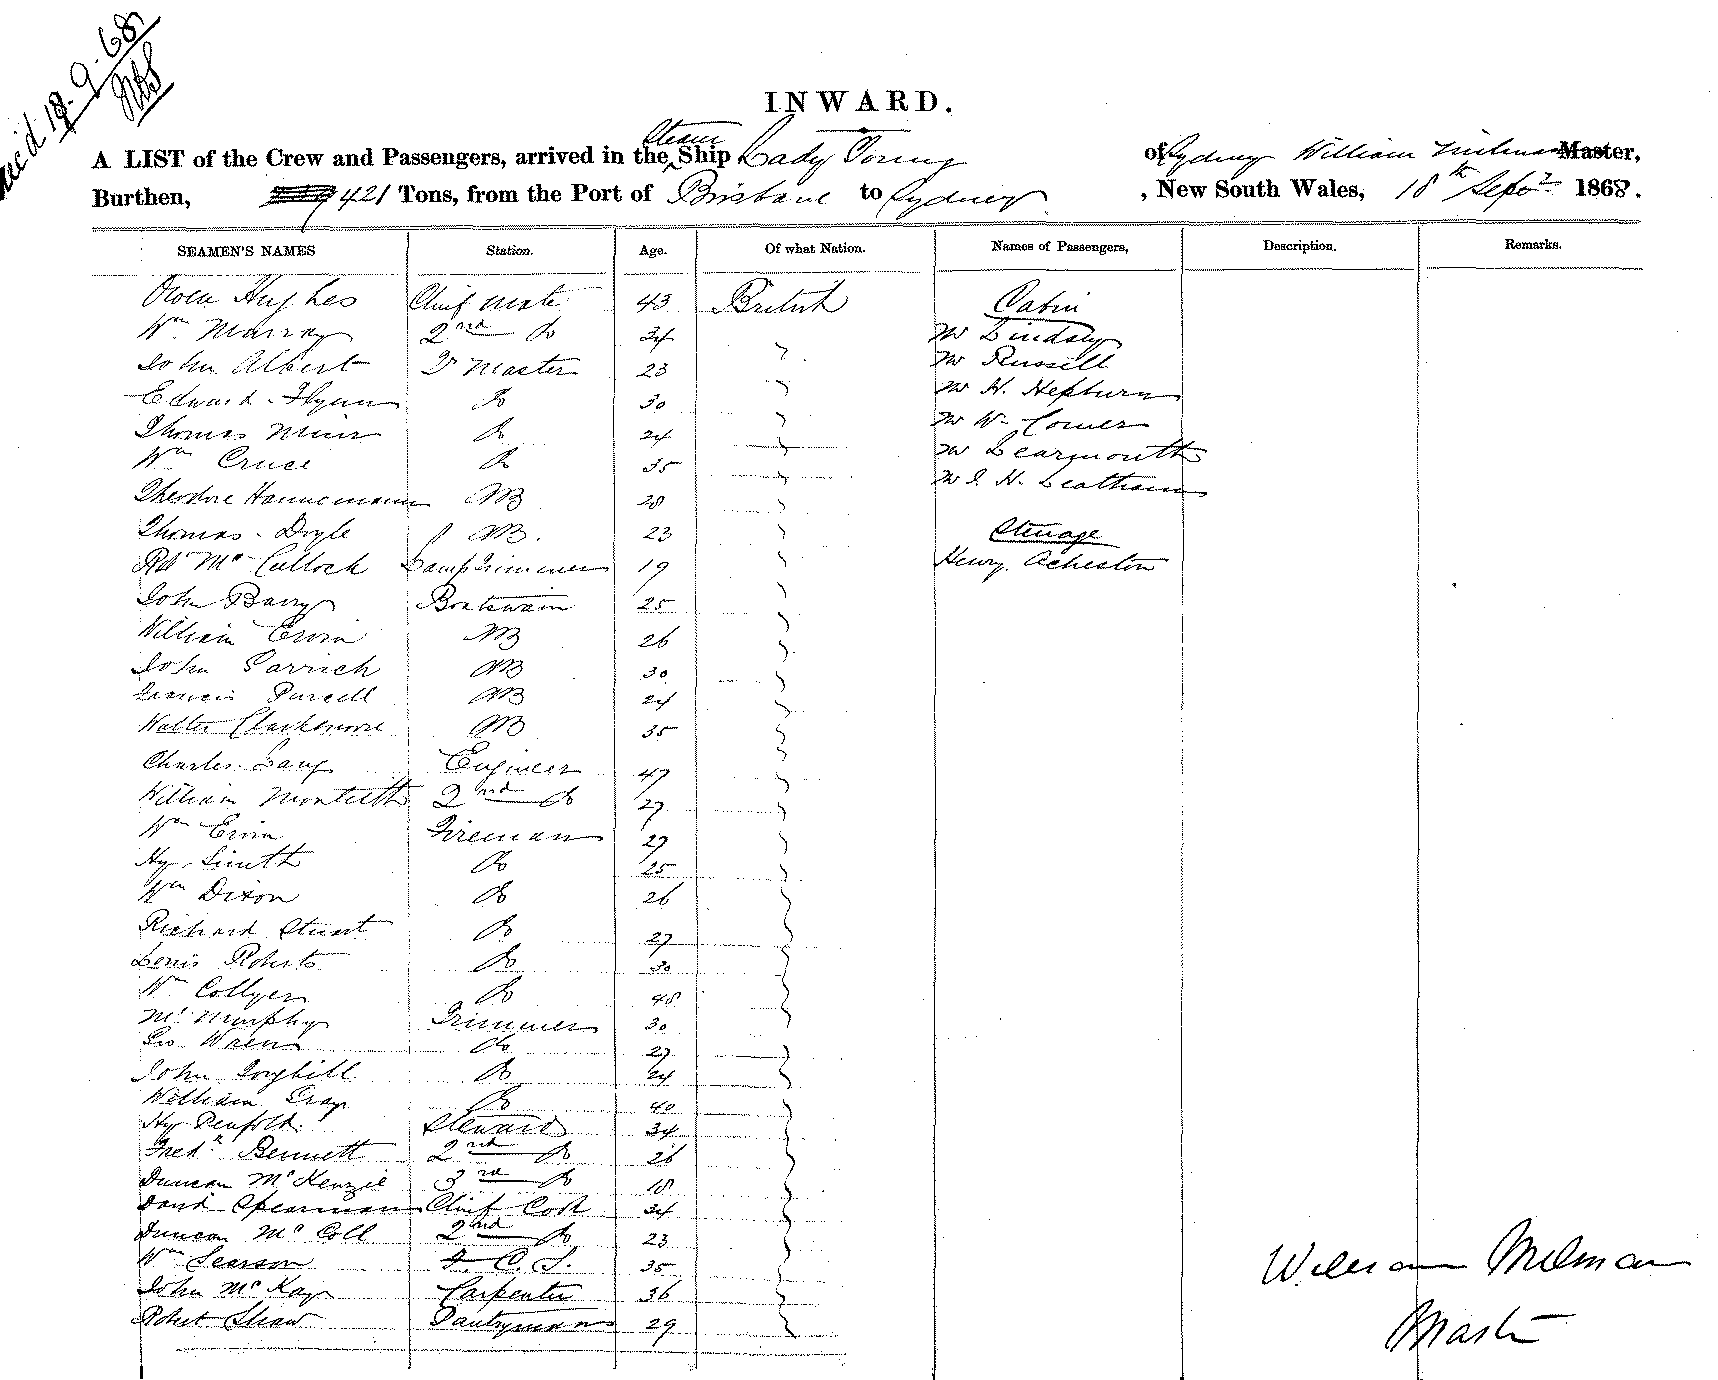 rec'd 19.9.68
INWARD.
A LIST of the Crew and Passengers, arrived in the Steam Ship Lady Young of Sydney William Milman Master,
Burthen, 421 Tons, from the Port of Brisbane to Sydney, New South Wales, 18th Sepr 1868.
SEAMEN'S NAMES Station. Age. Of what Nation. Names of Passengers, Description. Remarks.
Owen Hughes Chief mate 43 British Cabin
Wm Murray 2nd Do 34 " Mr Lindsay
John Albert Qr Master 23 " Mr Russell
Edward Flynn Do 30 " Mr H. Hepburn
Thomas Muir Do 24 " Mr W. Comer
Wm Cruce Do 35 " Mr Learmouth
Theodore Hannemann AB 28 " Mr J. H. Leatham
Thomas Doyle AB. 23 " Steerage
Rbt McCulloch Lamptrimmer 19 " Henry Acheston
John Barry Boatswain 25 "
William Ervin AB 26 "
John Garrich AB 30 "
Francis Purcell AB 24 "
Walter AB 35 "
Charles Lang Engineer 47 "
William Monteith 2nd Do 27 "
Wm Ervin Fireman 27 "
Hy Smith Do 25 "
Wm Dixon Do 26 "
Richard Stuart Do 27 "
Louis Roberts Do 30 "
Wm Collyer Do 48 "
Ml Murphy Trimmer 30 "
Geo Do 27 "
John Do 24 "
William Gray Do 40 "
Hy Penfold Steward 34 "
Fredk Bennett 2nd Do 26 "
Duncan McKenzie 3rd Do 18 "
David Spearman Chief Cook 34 "
Duncan McColl 2nd Do 23 "
Wm Searson F. C. S. 35 "
John McKay Carpenter 36 "
Robert Shaw Pantryman 29 "
William Milman
Master